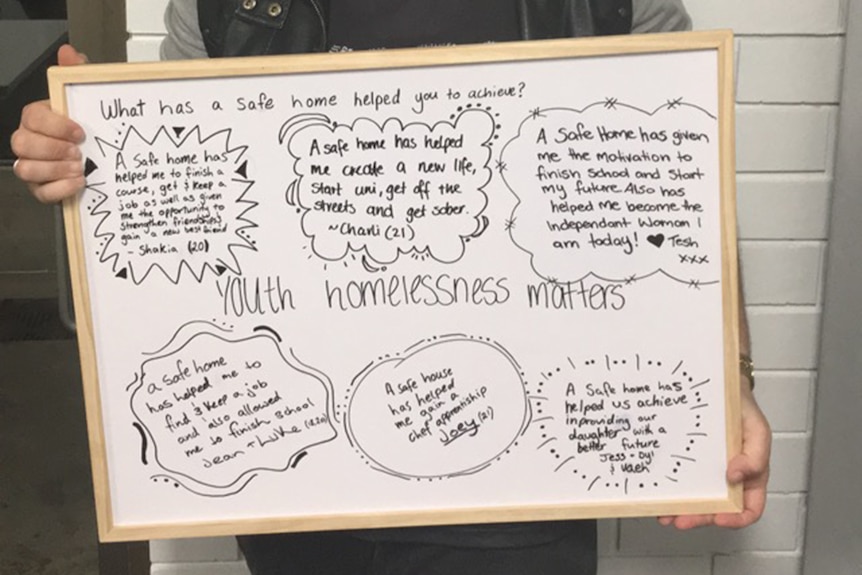 What has a safe home helped you to achieve?
A Safe home has
helped me to finish a
course, get & keep a
job as well as given
me the opportunity to
strengthen friendships
gain a new best friend
- Shakia (20)
A safe home has helped
me create a new life,
start uni, get off the
streets and get sober.
~Charli (21)
A Safe Home has given
me the motivation to
finish School and Start
my future. Also has
helped me become the
Independant Woman I
am today! ♥ Tesh
xxx
Youth homelessness matters
a safe home
has helped me to
find & keep a job
and also allowed
me to finish school
Jean + Luke
A safe house
has helped
me gain a
chef apprentiship
Joey (21)
A Safe home has
helped us achieve
in providing our
daughter with a
better future
Jess - Dyl
&